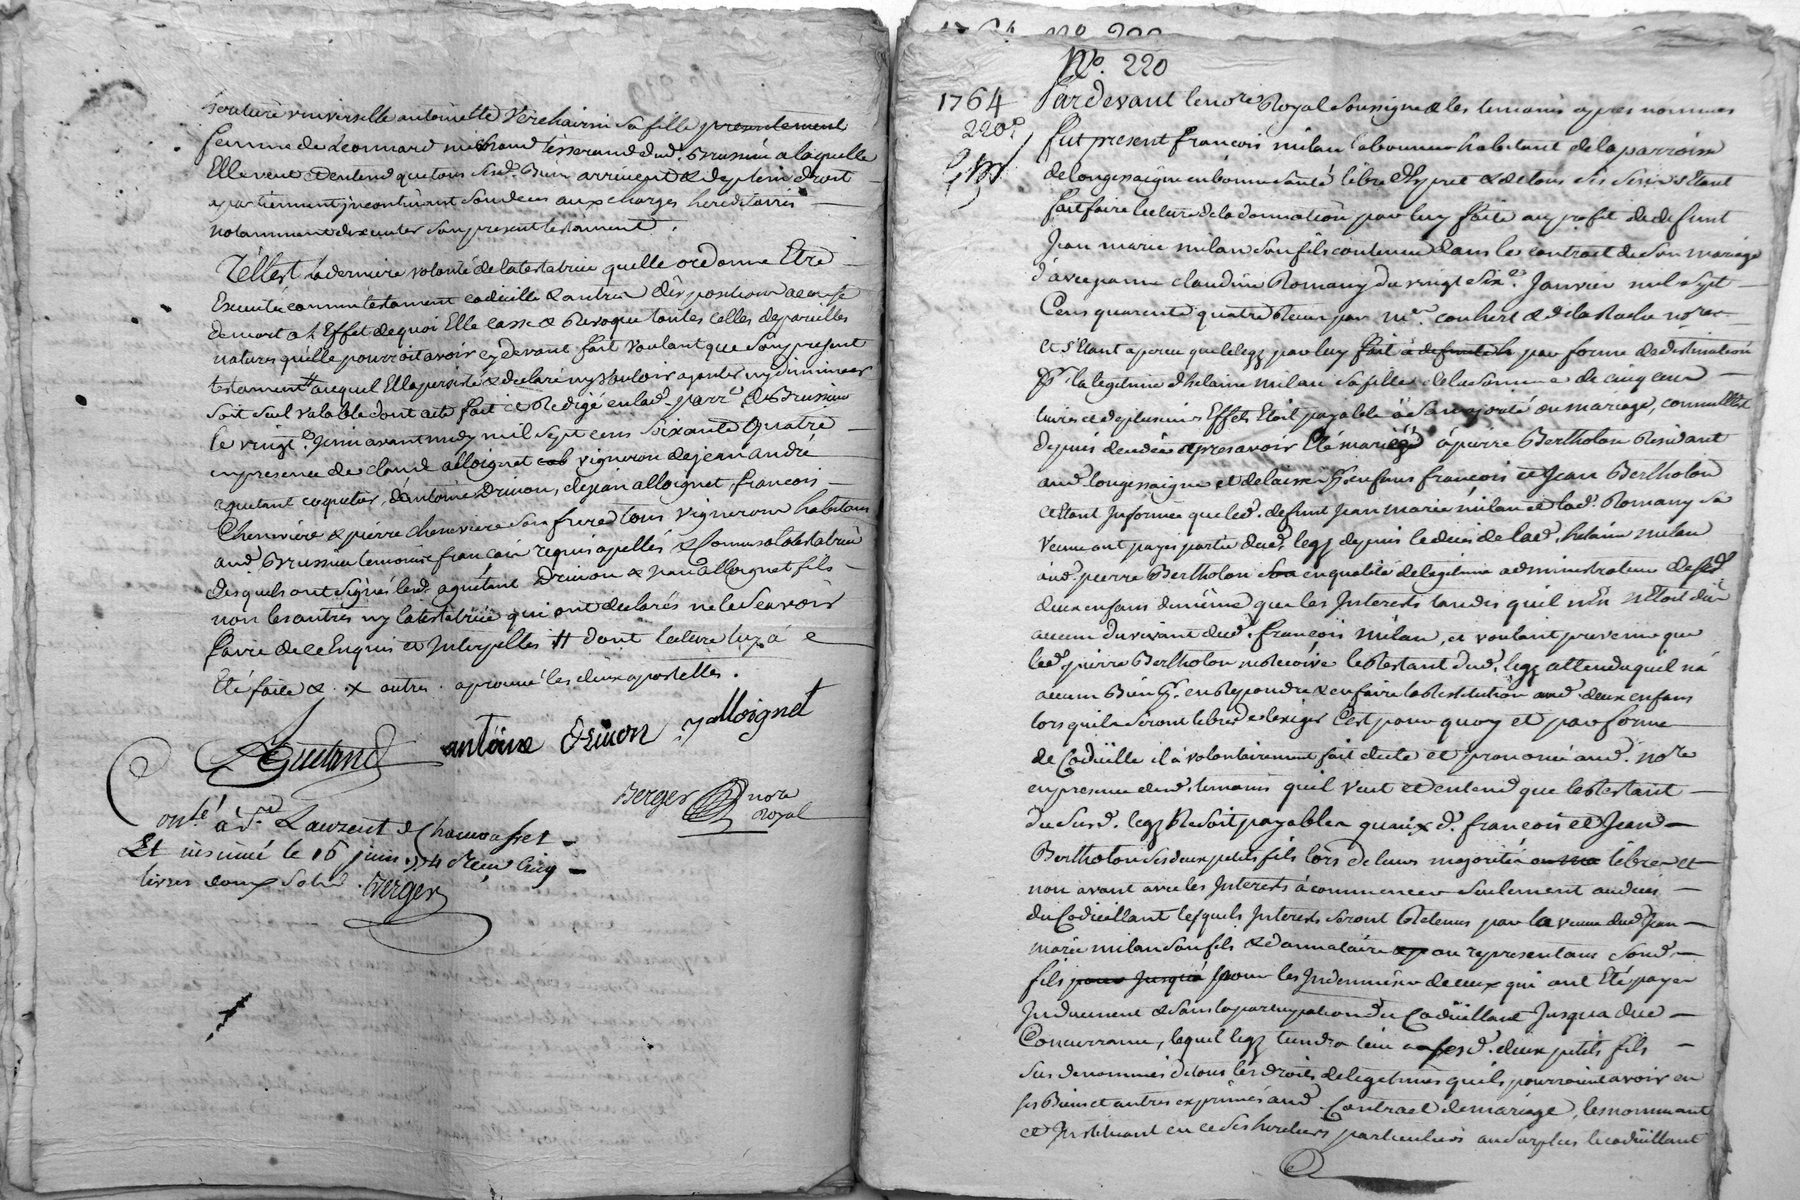 universelle antoinette Verchairin sa fille presentement
femme de Léonnard michaud tisserand dud. Brussieu a laquelle
Elle veut & entend que tous sesd. Biens arrivent & de plein droit
apartiennent incontinent son deces aux charges hereditaires
notamment d'executer son present testament.
Telle est la derniere volonté de la testatrice quelle ordonne Etre
Executée comme testament codicille & autres dispositions a cause
de mort a L'Effet de quoi Elle casse & Revoque toutes celles de pareilles
natures quelle pourroit avoir cy devant fait voulant que son present
testament auquel Elle persiste & declare ny vouloir ajouter ny diminuer
soit seul valable dont acte fait et Redigé en lad. parr.e de Brussieu
le vingt juin avant midy mil sept cens soixante quatre
en presence de claude alloignet vigneron de jean andré
agutant coquetier, d'antoine Drivon, de jean alloignet, francois
Cheneviere & pierre cheneviere son frere tous vignerons habitans
aud. Brussieu temoins francois requis apellés & Connus de la testatrice
desquels ont signés lesd. agutant Drivon & alloignet fils
non les autres ny la testatrice qui ont declarés ne le scavoir
faire de ce Enquis et Interpellés # dont lecture luy a
Eté faite & . x autres . aprouvé les deux apostilles.
Agutand antoine Drivon J alloignet
Berger nore
Royal
onlé à St Laurent de Chamousset
Et insinué le 16 juin 1764 Receu cinq
livres douze sols. Berger
No. 220
1764 Pardevant le nore Royal soussigné & les temoins apres nommés
220e fut present francois milan laboureur habitant de la parroisse
de longessaigne en bonne santé libre d'Esprit & de tous ses sens s'Etant
fait faire lecture de la donnation par luy faite au profit de defunt
Jean marie milan son fils contenue dans le contract de son mariage
d'avec anne claudine Romany du vingt six.e Janvier mil sept
Cens quarente quatre Receu par me. couhert & delaRoche nores
et s'Etant aperçu que le legz par luy fait à par forme de destination
pr. la legitime d'helaine milan sa fille de la somme de cinq cens
livres et de plusieurs Effets Etoit payable à sa majorité ou mariage, comm'Elle Est
depuis decedée apres avoir Eté mariée à pierre Bertholon Residant
aud. longessaigne et delaissé pr. enfans francois et Jean Bertholon
et Etant Informée que led. defunt Jean marie milan et lad. Romany sa
veuve ont payés partie dud. legz depuis le deces de lad. helaine milan
aud. pierre Bertholon en qualité de legitime administrateur de sesd
deux enfans de même que les Interests tandis qu'il n'En n'Etoit dus
aucun du vivant dud. francois milan, et voulant prevenir que
led. pierre Bertholon ne Recoive le Restant dud. legz attendu qu'il n'a
aucun Bien pr. en Repondre & en faire la Restitution auxd. deux enfans
lorsquils seront libres de l'exiger c'est pourquoy et par forme
de Codicille il à volontairement fait dicté et prononcé aud. nore
en presence desd. temoins quil veut et entend que le Restant
du susd. legz ne soit payable qu'auxd. francois et Jean
Bertholon ses deux petits fils lors de leurs majorités ou ma libres et
non avant avec les Interests à commencer seulement au deces
du Codicillant lesquels Interests seront Retenus par la veuve dud. Jean
marie milan son fils & donnataire ou representans sond.
fils pour jusqua pour les Indemniser de ceux qui ont Eté payés
Induement & sans la participation du Codicillant Jusqua due
Concurrance, lequel legz tiendra lieu a sesd. deux petits fils
sus denommés de tous les droits de legitimes qu'ils pourroient avoir en
ses Biens et autres exprimés aud. Contract de mariage, les nommant
et Instituant en ce ses heritiers particuliers au surplus le codicillant